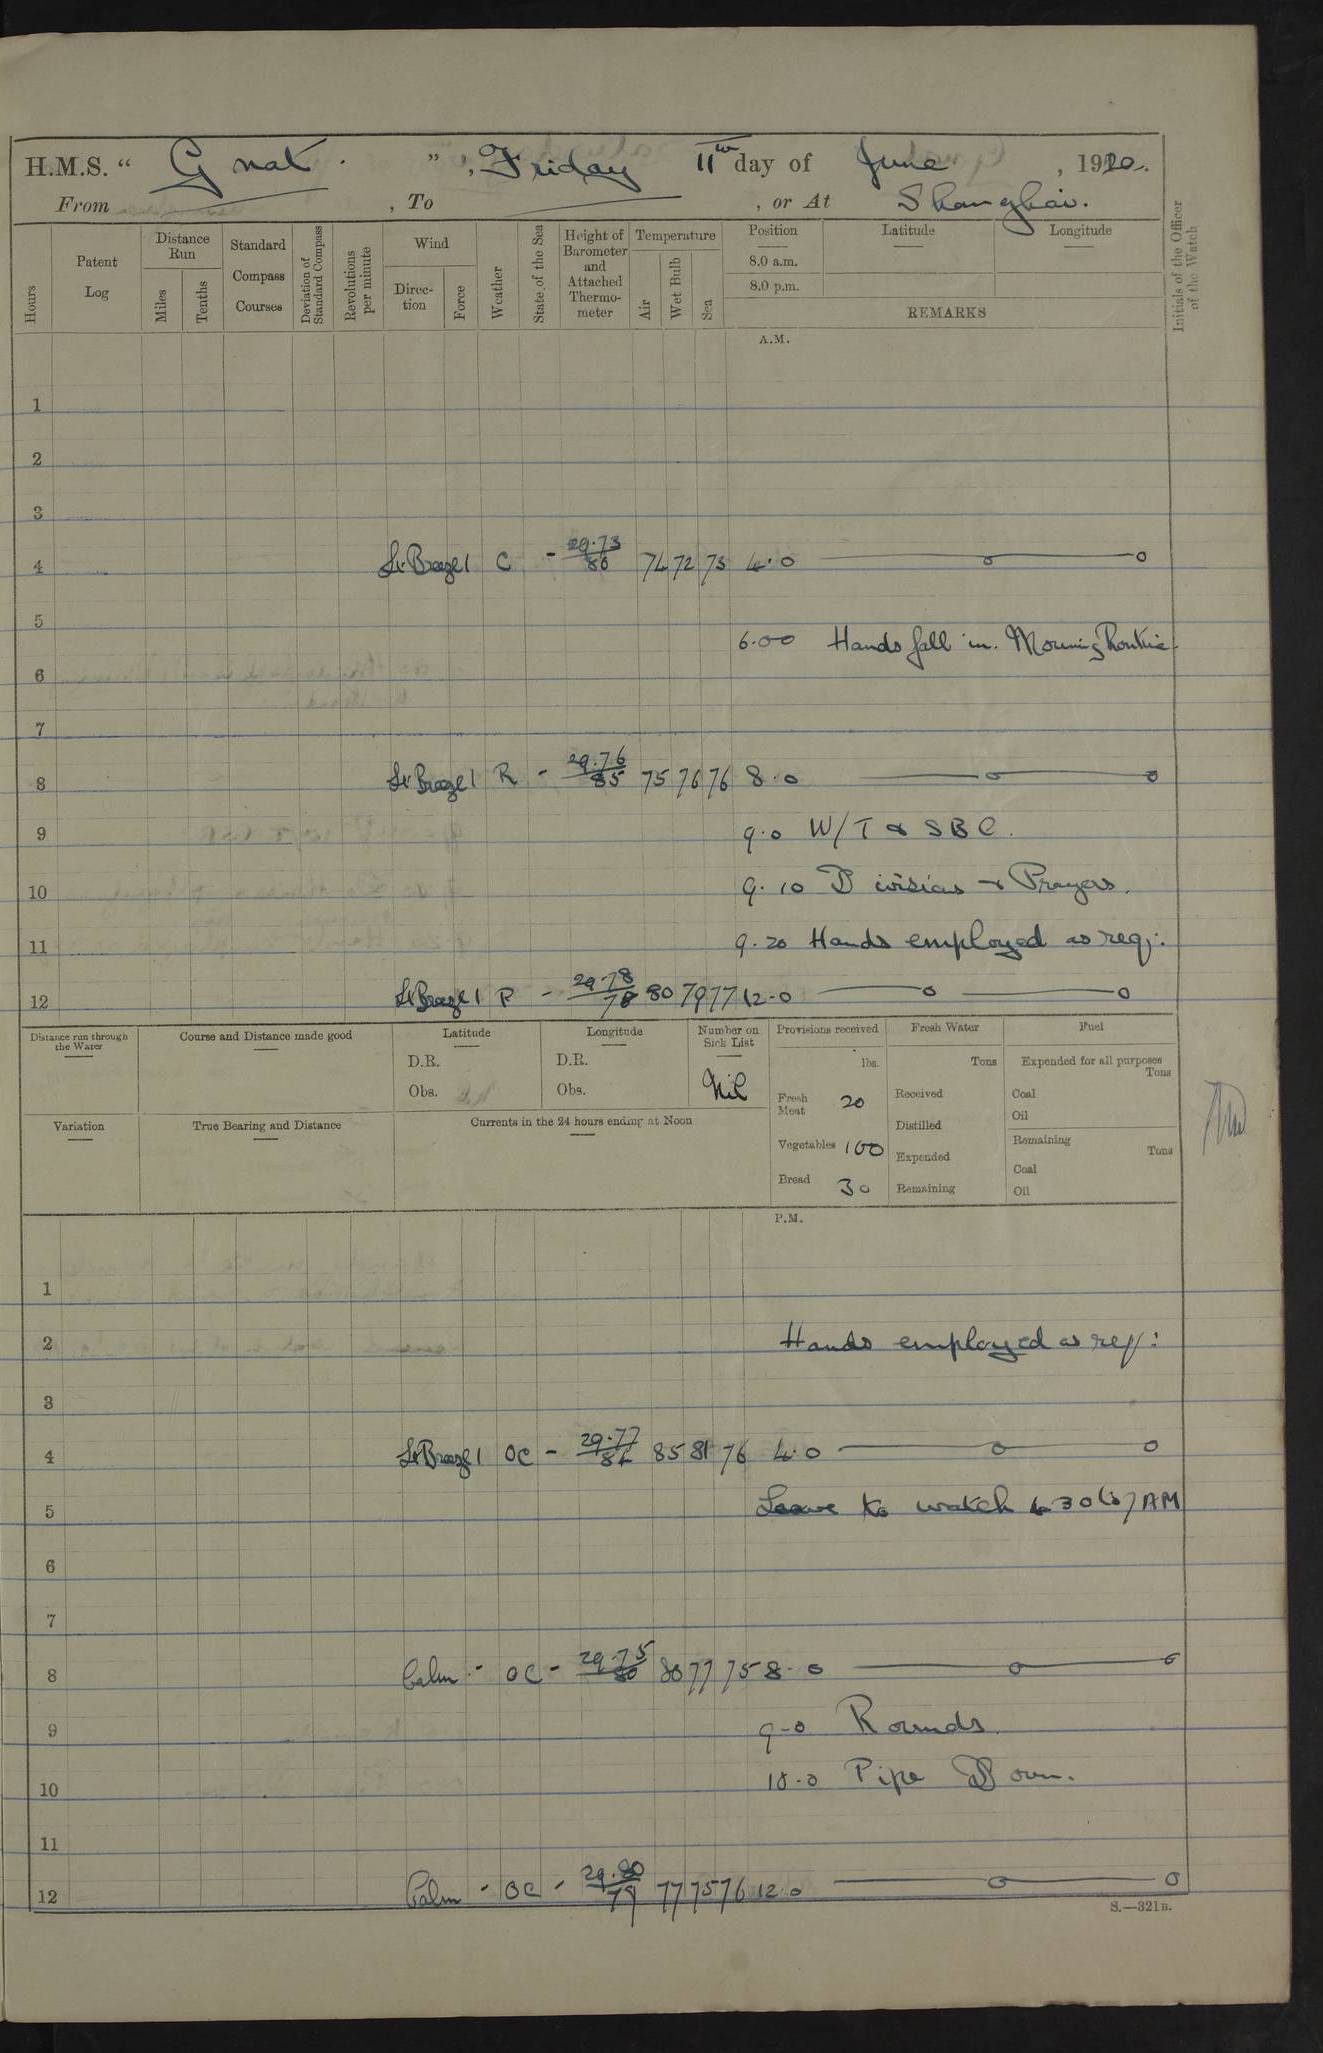 H.M.S. “ Gnat. ”, Friday 11th day of June, 1920.
From , To , or At Shanghai.
Hours
Patent Log
Distance Run
Miles
Tenths
Standard Compass Courses
Deviation of Standard Compass
Revolutions per minute
Wind
Direction
Force
Weather
State of the Sea
Height of Barometer and Attached Thermometer
Temperature
Air
Wet Bulb
Sea
Position
Latitude
Longitude
8.0 a.m.
8.0 p.m.
REMARKS
Initials of the Officer of the Watch
A.M.
1
2
3
4 Lt Breeze 1 C - 29.73 80 74 72 73 4.0
5
6.00 Hands fall in. Morning Routine.
6
7
8 Lt Breeze 1 R - 29.76 85 75 76 76 8.0
9 9.0 W/T & SBC.
10 9.10 Divisions & Prayers.
11 9.20 Hands employed as req:
12 Lt Breeze 1 R - 29.78 78 80 79 77 12.0
Distance run through the Water
Course and Distance made good
Latitude
D.R.
Obs.
Longitude
D.R.
Obs.
Number on Sick List
Nil
Provisions received
lbs.
Fresh Meat 20
Vegetables 100
Bread 30
Fresh Water
Tons
Received
Distilled
Expended
Remaining
Fuel
Expended for all purposes
Tons
Coal
Oil
Remaining
Tons
Coal
Oil
Variation
True Bearing and Distance
Currents in the 24 hours ending at Noon
P.M.
1
2 Hands employed as req:
3
4 Lt Breeze 1 OC - 29.77 84 85 81 76 4.0
5 Leave to watch 4 30 to 7 AM
6
7
8 Calm - OC - 29.75 80 80 77 75 8.0
9 9-0 Rounds.
10 10.0 Pipe Down.
11
12 Calm - OC - 29.80 79 77 75 76 12.0
S.—321B.